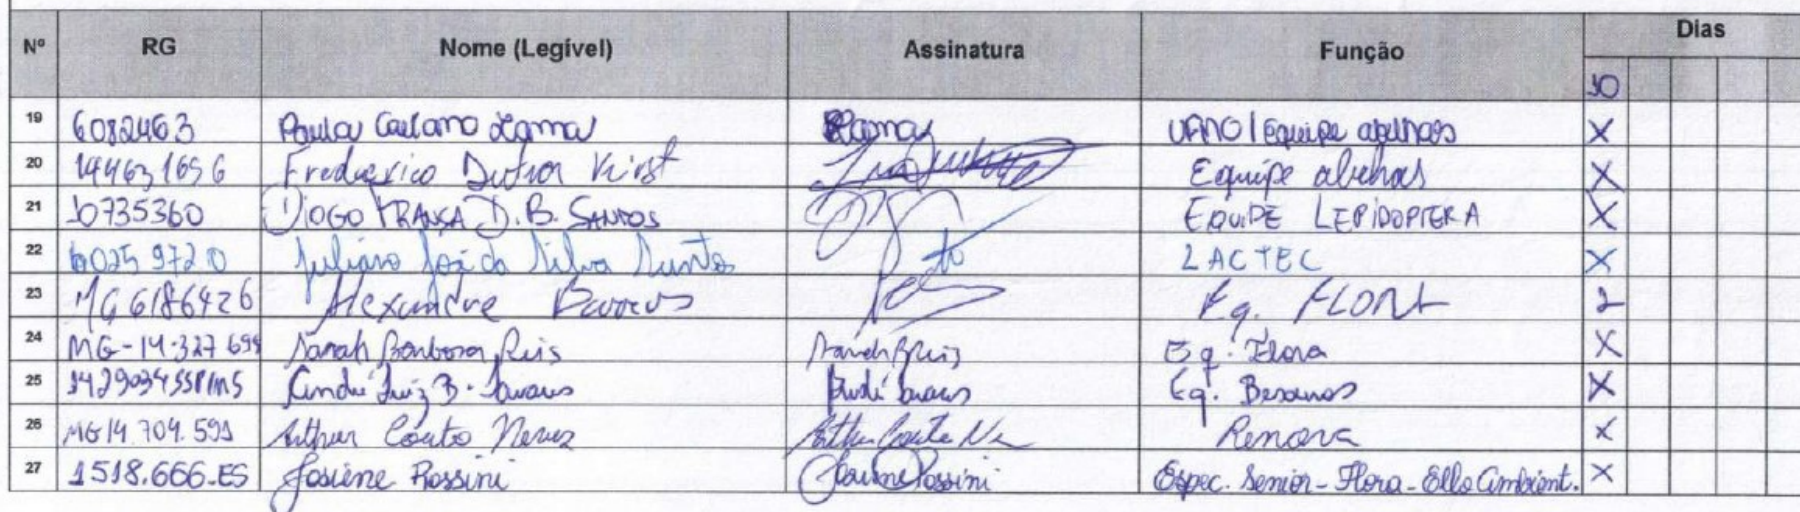 Nº RG Nome (Legível) Assinatura Função Dias
10
19 6082463 Paula Caetano Zama PZama UFMG / Equipe abelhas X
20 1446316 Frederico Dutra Kirst Equipe abelhas X
21 10735360 DIOGO FRANÇA D. B. SANTOS EQUIPE LEPIDOPTERA X
22 6025 972 0 Juliano José da Silva Santos LACTEC X
23 MG 6186426 Alexandre Eq. FLORA
24 MG-14.327 699 Sarah Barbosa Reis Sarah BReis Eq. Flora X
25 1429034 SSP/MS André Luiz B. Tavares André Tavares Eq. Besouros X
26 MG 14.704.591 Arthur Couto Neves Arthur Couto Ne Renova X
27 1518.666-ES Josiene Rossini Josiene Rossini Espec. Senior - Flora - Ello Ambient. X